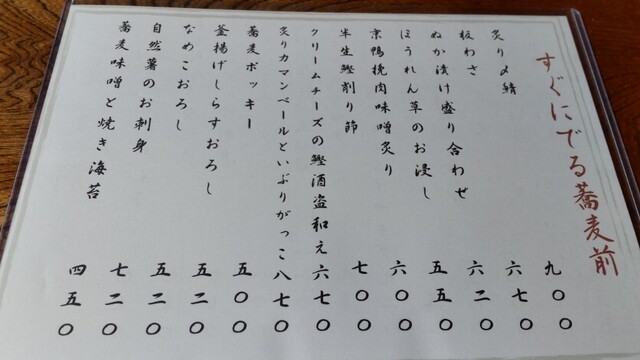 すぐにでる蕎麦前
炙り〆鯖 九〇〇
板わさ 六七〇
ぬか漬け盛り合わせ 六二〇
ほうれん草のお浸し 五五〇
京鴨挽肉味噌炙り 六〇〇
半生鰹削り節 七〇〇
クリームチーズの鰹酒盗和え 六七〇
炙りカマンベールといぶりがっこ 八七〇
蕎麦ポッキー 五〇〇
釜揚げしらすおろし 五二〇
なめこおろし 五二〇
自然薯のお刺身 七二〇
蕎麦味噌と焼き海苔 四五〇